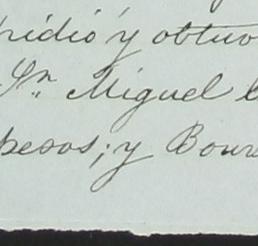 pidió y obtuvo
Sn. Miguel
pesos; y